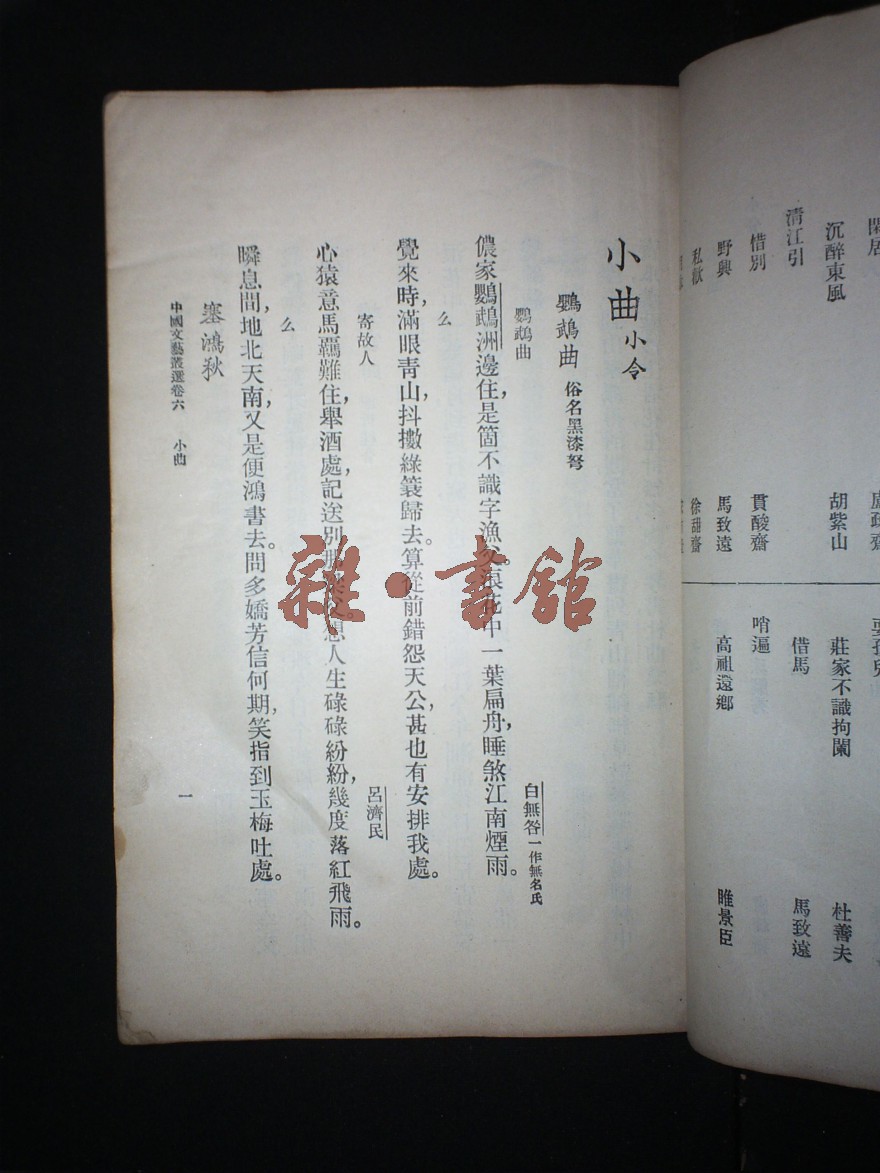 沉醉東風 胡紫山
清江引
惜別 貫酸齋
野興 馬致遠
私歡 徐甜齋
莊家不識拘闌 杜善夫
借馬 馬致遠
哨遍
高祖還鄉 睢景臣
小曲 小令
鸚鵡曲 俗名黑漆弩
鸚鵡曲 白無咎 一作無名氏
儂家鸚鵡洲邊住，是箇不識字漁父。浪花中一葉扁舟，睡煞江南煙雨。
么
覺來時，滿眼青山，抖擻綠簑歸去。算從前錯怨天公，甚也有安排我處。
寄故人 呂濟民
心猿意馬羈難住，舉酒處，記送別那想人生碌碌紛紛，幾度落紅飛雨。
么
瞬息間，地北天南，又是便鴻書去。問多嬌芳信何期，笑指到玉梅吐處。
塞鴻秋
中國文藝叢選卷六 小曲 一
雜·書館